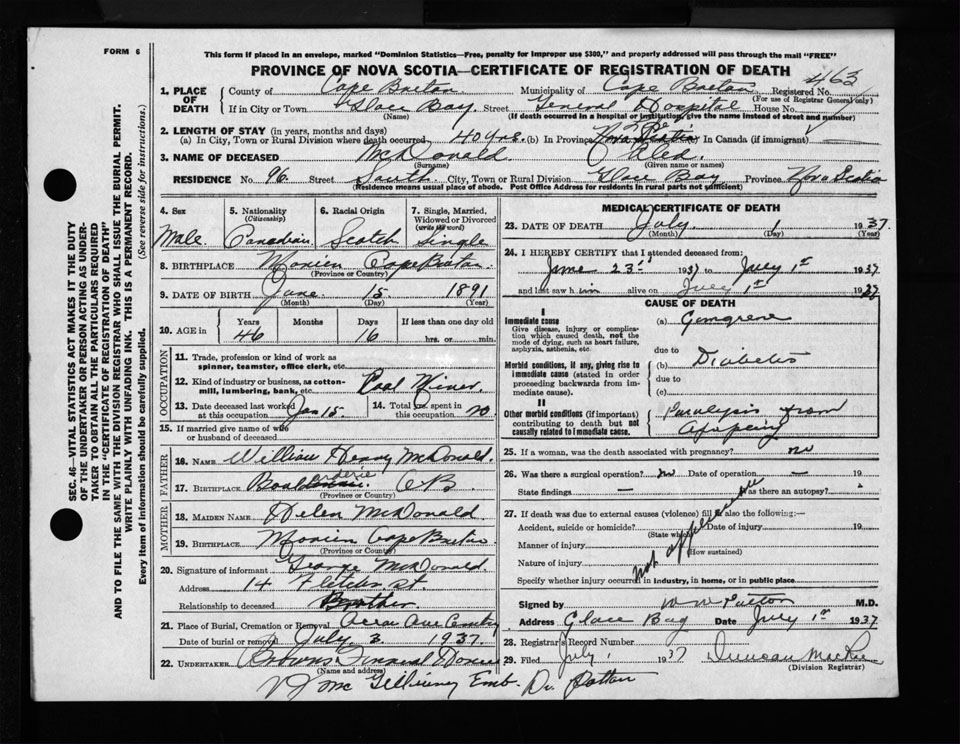 FORM 6
This form if placed in an envelope, marked "Dominion Statistics—Free, penalty for improper use $300," and properly addressed will pass through the mail "FREE"
PROVINCE OF NOVA SCOTIA—CERTIFICATE OF REGISTRATION OF DEATH
463
1. PLACE OF DEATH County of Cape Breton Municipality of Cape Breton Registered No.
(For use of Registrar General only)
If in City or Town Glace Bay Street General Hospital House No.
(Name) (If death occurred in a hospital or institution, give the name instead of street and number)
2. LENGTH OF STAY (in years, months and days)
(a) In City, Town or Rural Division where death occurred 40 yrs. (b) In Province Nova Scotia (c) In Canada (if immigrant)
3. NAME OF DECEASED McDonald Alex.
(Surname) (Given name or names)
RESIDENCE No. 96 Street South City, Town or Rural Division Glace Bay Province Nova Scotia
(Residence means usual place of abode. Post Office Address for residents in rural parts not sufficient)
4. Sex Male
5. Nationality (Citizenship) Canadian
6. Racial Origin Scotch
7. Single, Married, Widowed or Divorced (write the word) Single
8. BIRTHPLACE Morien Cape Breton
(Province or Country)
9. DATE OF BIRTH June 15 1891
(Month) (Day) (Year)
10. AGE in Years 46 Months Days 16 If less than one day old hrs. or min.
OCCUPATION
11. Trade, profession or kind of work as spinner, teamster, office clerk, etc.
12. Kind of industry or business, as cotton-mill, lumbering, bank, etc. Coal Miner
13. Date deceased last worked at this occupation Jan 15
14. Total yrs. spent in this occupation 20
15. If married give name of wife or husband of deceased
FATHER
16. NAME William Henry McDonald
17. BIRTHPLACE CB
(Province or Country)
MOTHER
18. MAIDEN NAME Helen McDonald
19. BIRTHPLACE Morien Cape Breton
(Province or Country)
20. Signature of informant George McDonald
Address 14 St
Relationship to deceased Brother
21. Place of Burial, Cremation or Removal
Date of burial or removal July 3 1937
22. UNDERTAKER Browns Funeral Home
(Name and address)
Emb. Dr. Patton
MEDICAL CERTIFICATE OF DEATH
23. DATE OF DEATH July 1 1937
(Month) (Day) (Year)
24. I HEREBY CERTIFY that I attended deceased from:
June 23 1937 to July 1st 1937
and last saw him alive on July 1st 1937
CAUSE OF DEATH
I
Immediate cause
Give disease, injury or complication which caused death, not the mode of dying, such as heart failure, asphyxia, asthenia, etc.
(a) Gangrene
due to
Morbid conditions, if any, giving rise to immediate cause (stated in order proceeding backwards from immediate cause).
(b) Diabetes
due to
(c)
II
Other morbid conditions (if important) contributing to death but not causally related to immediate cause.
Paralysis from
25. If a woman, was the death associated with pregnancy? no
26. Was there a surgical operation? no Date of operation —
State findings — Was there an autopsy?
27. If death was due to external causes (violence) fill in also the following:—
Accident, suicide or homicide? Date of injury 19
(State which)
Manner of injury
(How sustained)
Nature of injury
not applicable
Specify whether injury occurred in industry, in home, or in public place
Signed by W W Patton M.D.
Address Glace Bay Date July 1st 1937
28. Registrar's Record Number
29. Filed July 1 1937 Duncan
(Division Registrar)
SEC. 46—VITAL STATISTICS ACT MAKES IT THE DUTY
OF THE UNDERTAKER OR PERSON ACTING AS UNDERTAKER TO OBTAIN ALL THE PARTICULARS REQUIRED
IN THE "CERTIFICATE OF REGISTRATION OF DEATH"
AND TO FILE THE SAME WITH THE DIVISION REGISTRAR WHO SHALL ISSUE THE BURIAL PERMIT.
WRITE PLAINLY WITH UNFADING INK. THIS IS A PERMANENT RECORD.
Every item of information should be carefully supplied. (See reverse side for instructions.)